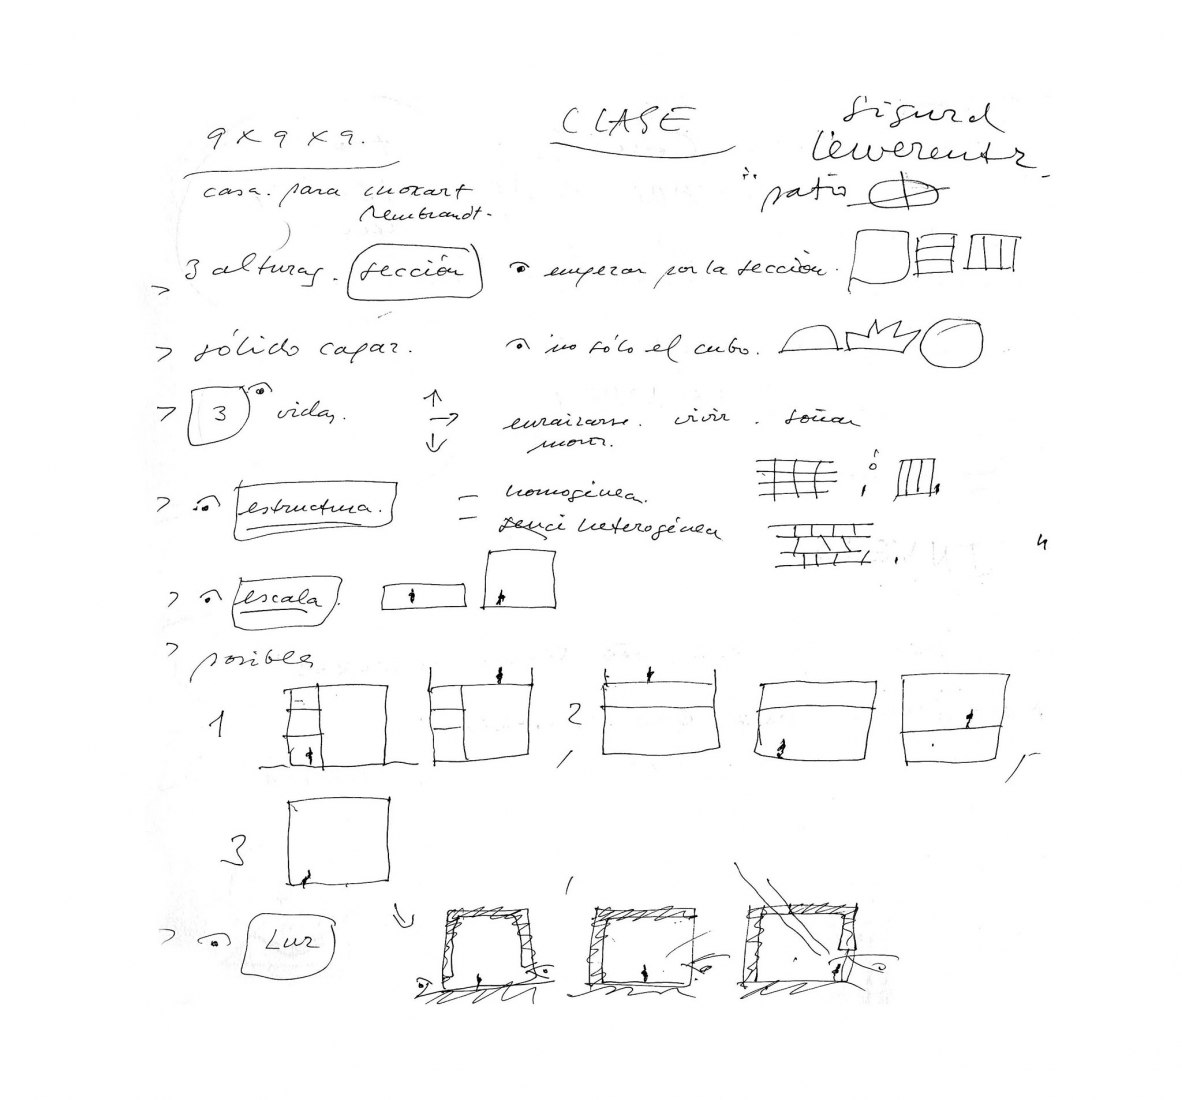 9 x 9 x 9.
CLASE
Sigurd
Lewerentz
casa. para mozart
rembrandt.
patio
3 alturas. sección
empezar por la sección.
> sólido capaz.
no sólo el cubo.
> 3 vidas.
enraizarse. vivir. soñar
morir.
> estructura.
- homogénea.
- heterogénea
ó
> escala.
> posibles
1
2
3
> Luz